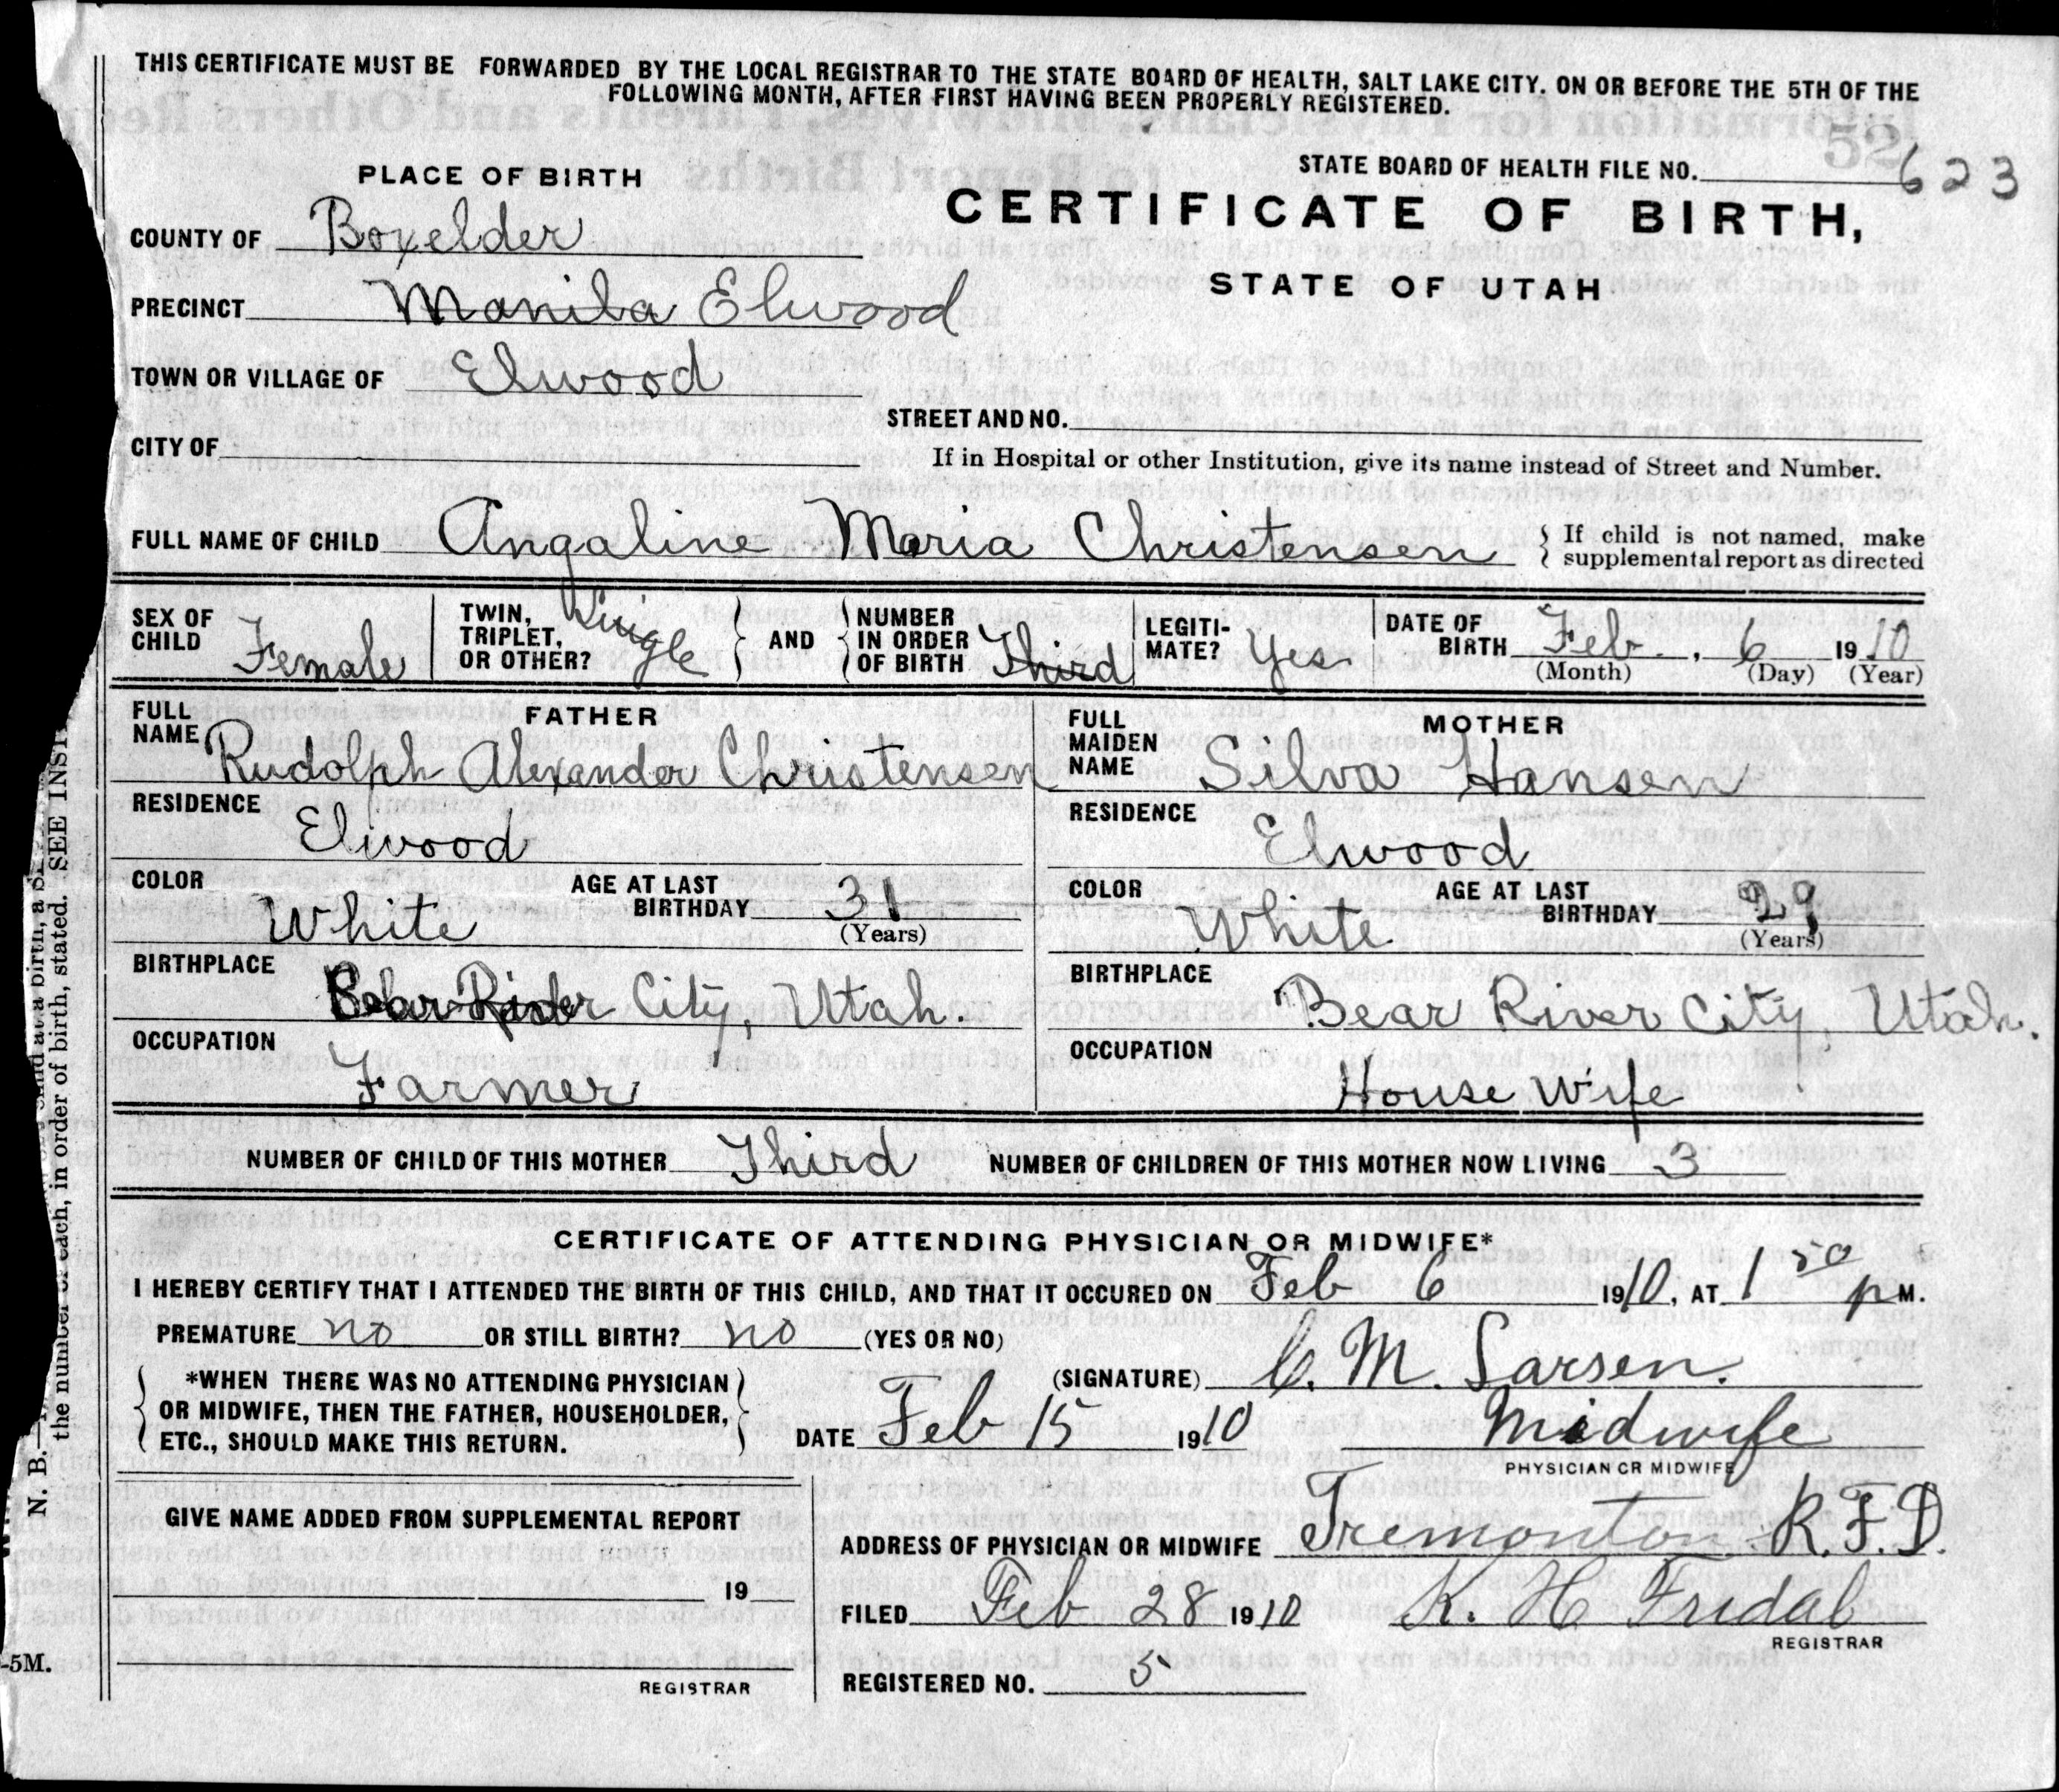 THIS CERTIFICATE MUST BE FORWARDED BY THE LOCAL REGISTRAR TO THE STATE BOARD OF HEALTH, SALT LAKE CITY. ON OR BEFORE THE 5TH OF THE
FOLLOWING MONTH, AFTER FIRST HAVING BEEN PROPERLY REGISTERED.
PLACE OF BIRTH
STATE BOARD OF HEALTH FILE NO. 623
52
CERTIFICATE OF BIRTH,
STATE OF UTAH
COUNTY OF Boxelder
PRECINCT Manila Elwood
TOWN OR VILLAGE OF Elwood
STREET AND NO.
CITY OF
If in Hospital or other Institution, give its name instead of Street and Number.
FULL NAME OF CHILD Angaline Maria Christensen
If child is not named, make
supplemental report as directed
SEX OF CHILD Female
TWIN, TRIPLET, OR OTHER? Single
AND
NUMBER IN ORDER OF BIRTH Third
LEGITI-MATE? Yes.
DATE OF BIRTH Feb. , 6 1910
(Month) (Day) (Year)
FATHER
FULL NAME Rudolph Alexander Christensen
RESIDENCE Elwood
COLOR White
AGE AT LAST BIRTHDAY 31
(Years)
BIRTHPLACE Bear River City, Utah.
OCCUPATION Farmer
MOTHER
FULL MAIDEN NAME Silva Hansen
RESIDENCE Elwood
COLOR White
AGE AT LAST BIRTHDAY 29
(Years)
BIRTHPLACE Bear River City, Utah.
OCCUPATION House Wife
NUMBER OF CHILD OF THIS MOTHER Third NUMBER OF CHILDREN OF THIS MOTHER NOW LIVING 3
CERTIFICATE OF ATTENDING PHYSICIAN OR MIDWIFE*
I HEREBY CERTIFY THAT I ATTENDED THE BIRTH OF THIS CHILD, AND THAT IT OCCURED ON Feb 6 1910, AT 1 50 P M.
PREMATURE no OR STILL BIRTH? no (YES OR NO)
*WHEN THERE WAS NO ATTENDING PHYSICIAN
OR MIDWIFE, THEN THE FATHER, HOUSEHOLDER,
ETC., SHOULD MAKE THIS RETURN.
(SIGNATURE) C. M. Larsen.
DATE Feb 15 1910 Midwife
PHYSICIAN OR MIDWIFE
GIVE NAME ADDED FROM SUPPLEMENTAL REPORT
19
REGISTRAR
ADDRESS OF PHYSICIAN OR MIDWIFE Tremonton R.F.D.
FILED Feb 28 1910 K. H Fridal
REGISTRAR
REGISTERED NO. 5
N. B.
child at a birth, a
the number of each, in order of birth, stated. SEE INST
-5M.